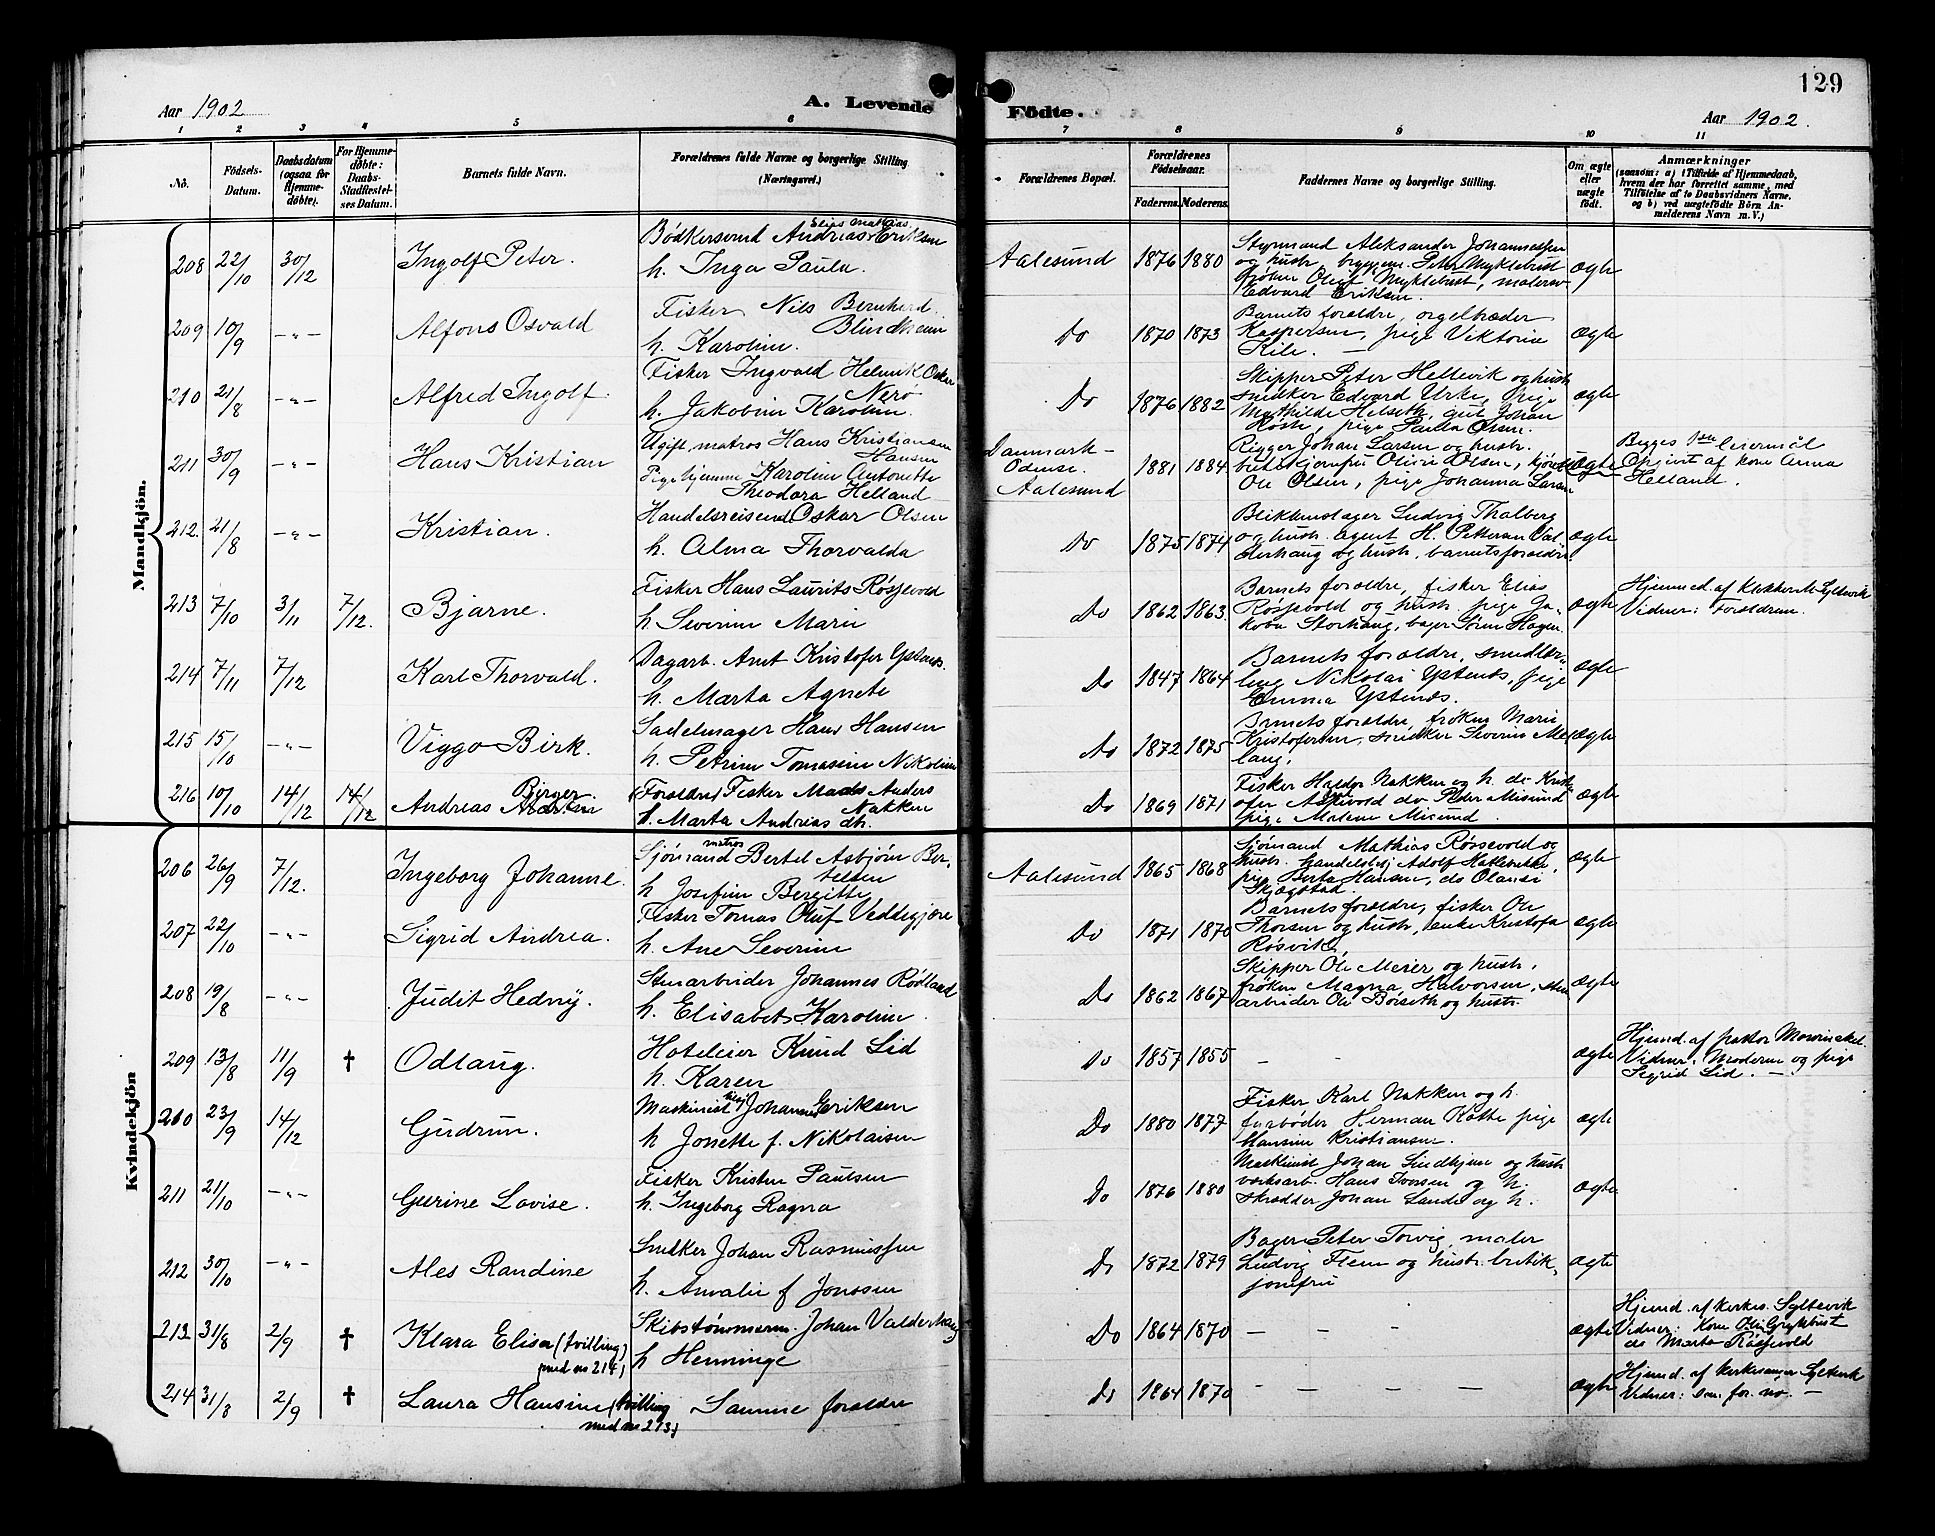 129
Aar 1902
A. Levende Födte.
Aar 1902.
1 2 3 4 5 6 7 8 9 10 11
No.
Födsels-Datum.
Daabsdatum (ogsaa for Hjemmedöbte).
For Hjemmedöbte: Daabs-Stadfæstelses Datum.
Barnets fulde Navn.
Forældrenes fulde Navne og borgerlige Stilling (Næringsvei.)
Forældrenes Bopæl.
Forældrenes Födselsaar.
Faderens. Moderens.
Faddernes Navne og borgerlige Stilling.
Om ægte eller uægte födt.
Anmærkninger
(saasom: a) i Tilfælde af Hjemmedaab, hvem der har forrettet samme, med Tilföielse af to Daabsvidners Navne, og b) ved uægtefödte Börn Anmelderens Navn m. V.)
Mandkjön.
208 22/10 30/12 Ingolf Peter.
Bødkersvend Andreas Elias Mathias Eriksen
h. Inga Paula
Aalesund 1876 1880
Styrmand Aleksander Johannessen
og hustr., Peter Myklebust
frøken Olga Myklebust, malersv
Edvard Eriksen.
ægte
209 10/9 -"- Alfons Osvald
Fisker Nils Bernhard
Blindheim
h. Karoline.
Do 1870 1873
Barnets foraldre, orgeltræder
Kaspersen, pige Viktorine
Kile.
ægte
210 21/8 -"- Alfred Ingolf.
Fisker Ingvald Henrik Oskar
Nerø
h. Jakobine Karoline.
Do 1876 1882
Skipper Peter Hellevik og hustr
snedker Edvard Urke, pige
Mathilde Helseth, gut Johan
pige Paula Olsen.
ægte
211 30/9 -"- Hans Kristian
Ugift matros Hans Kristiansen
Hansen
Pige hjemme Karoline Antonette
Theodora Helland
Danmark -
Odense.
Aalesund
1881 1884
Rigger Johan Larsen og hustr.
Olsen,
Ole Olsen, pige Johanna Larsen
uægte
Begges 1ste leiermål
Opgivet af kone Anna
Helland.
212. 21/8 -"- Kristian.
Handelsreisende Oskar Olsen
h. Alma Thorvalda
Do 1875 1874
Blikkenslager Ludvig Thalberg
og hustr. agent H. Petterson Val-
derhaug og hustr, barnetsforaldre
ægte
213 7/10 3/11 7/12. Bjarne.
Fisker Hans Laurits Røssevold
h Severine Marie
Do 1862 1863.
Barnets foraldre, fisker Elias
Røssevold og hustr. pige Ja-
koba Storhaug, bager Søren Hagen.
ægte
Hjemmed. af Klokker M. Syltevik
Vidner: Foraldrene.
214 7/11 7/12 Karl Thorvald.
Dagarb. Anet Kristofer Ystenes.
h. Marta Agnete
Do 1847 1864
Barnets foraldre, smedlær-
ling Nikolai Ystenes, pige
Emma Ystenes.
ægte
215 15/10 -"- Viggo Birk.
Sadelmager Hans Hansen
h. Petrine Tomasine Nikoline
Do 1872 1875
Barnets foraldre, frøken Marie
Kristofersen, snedker Severin Me-
lang.
ægte
216 10/10 14/12 14/12 Andreas Birger.
(Foraldre) Fisker Mads Anders
Nakken
h. Marta Andrias dtr.
Do 1869 1871
Fisker Haldor Nakken og h. do Krist-
ofer Aspevold do Peder Misund
pige Malene Misund
ægte
Kvindekjön
206 26/9 7/12. Ingeborg Johanne.
Sjømand matros Bertel Asbjørn Ber-
telsen
h Josefine Bergitte
Aalesund 1865 1868
Sjømand Mathias Røssevold og
hustr. handelsbetj Adolf Hatlebrekke,
pige Berta Hansen, do Olausi
Skjegstad.
ægte
207 22/10 -"- Sigrid Andrea.
Fisker Tomas Oluf Veddegjære
h. Ane Severine
Do 1871 1870
Barnets foraldre, fisker Ole
Thorsen og hustr, enke Kristofa
Røsvik.
ægte
208 19/8 -"- Judit Hedvig.
Stenarbeider Johannes Rødland
h. Elisabet Karoline.
Do 1862 1867
Skipper Ole Meier og hustr.
frøken Magna Halvorsen, sten
arbeider Ole Boiseth og hustr
ægte
209 13/8 11/9 † Odlaug.
Hoteleier Knud Lid
h. Karen
Do 1857 1855
- -
ægte
Hjemd. af pastor
Vidner: Moderen og pige
Sigrid Lid. -
210 23/9 14/12 Gudrun.
Maskinist Johannes Eriksen
h Jonette f. Nikolaisen
Do 1880 1877
Fisker Karl Nakken og h.
fyrbøder Herman Kåtte pige
Hansine Kristiansen.
ægte
211 21/10 -"- Gurine Lovise.
Fisker Kristen Paulsen
h. Ingeborg Ragna
Do 1876 1880
Maskinist Johan Lindhjem og hustr
værksarb. Hans Iversen og h.
skrædder Johan Lande og h.
ægte
212 30/10 -"- Ales Randine
Snedker Johan Rasmussen
h. Amalie f Jonssen
Do 1872 1879
Bager Peter Torvig, maler
Ludvig Flem og hustr. butik-
jomfru
ægte
213 31/8 2/9 † Klara Elise (tvilling
med no 214)
Skibstømmerm. Johan Valderhaug
h Henninge
Do 1864 1870
- - - -
ægte
Hjemd. af kirkes. Syltevik
Vidner: Kone
do Marta Røssevold
214 31/8 2/9 † Laura Hansine (tvilling
med no 213)
Samme foraldre
Do 1864 1870
- - - -
ægte
Hjemd. af kirkesanger Syltevik
Vidner: som for. no. -